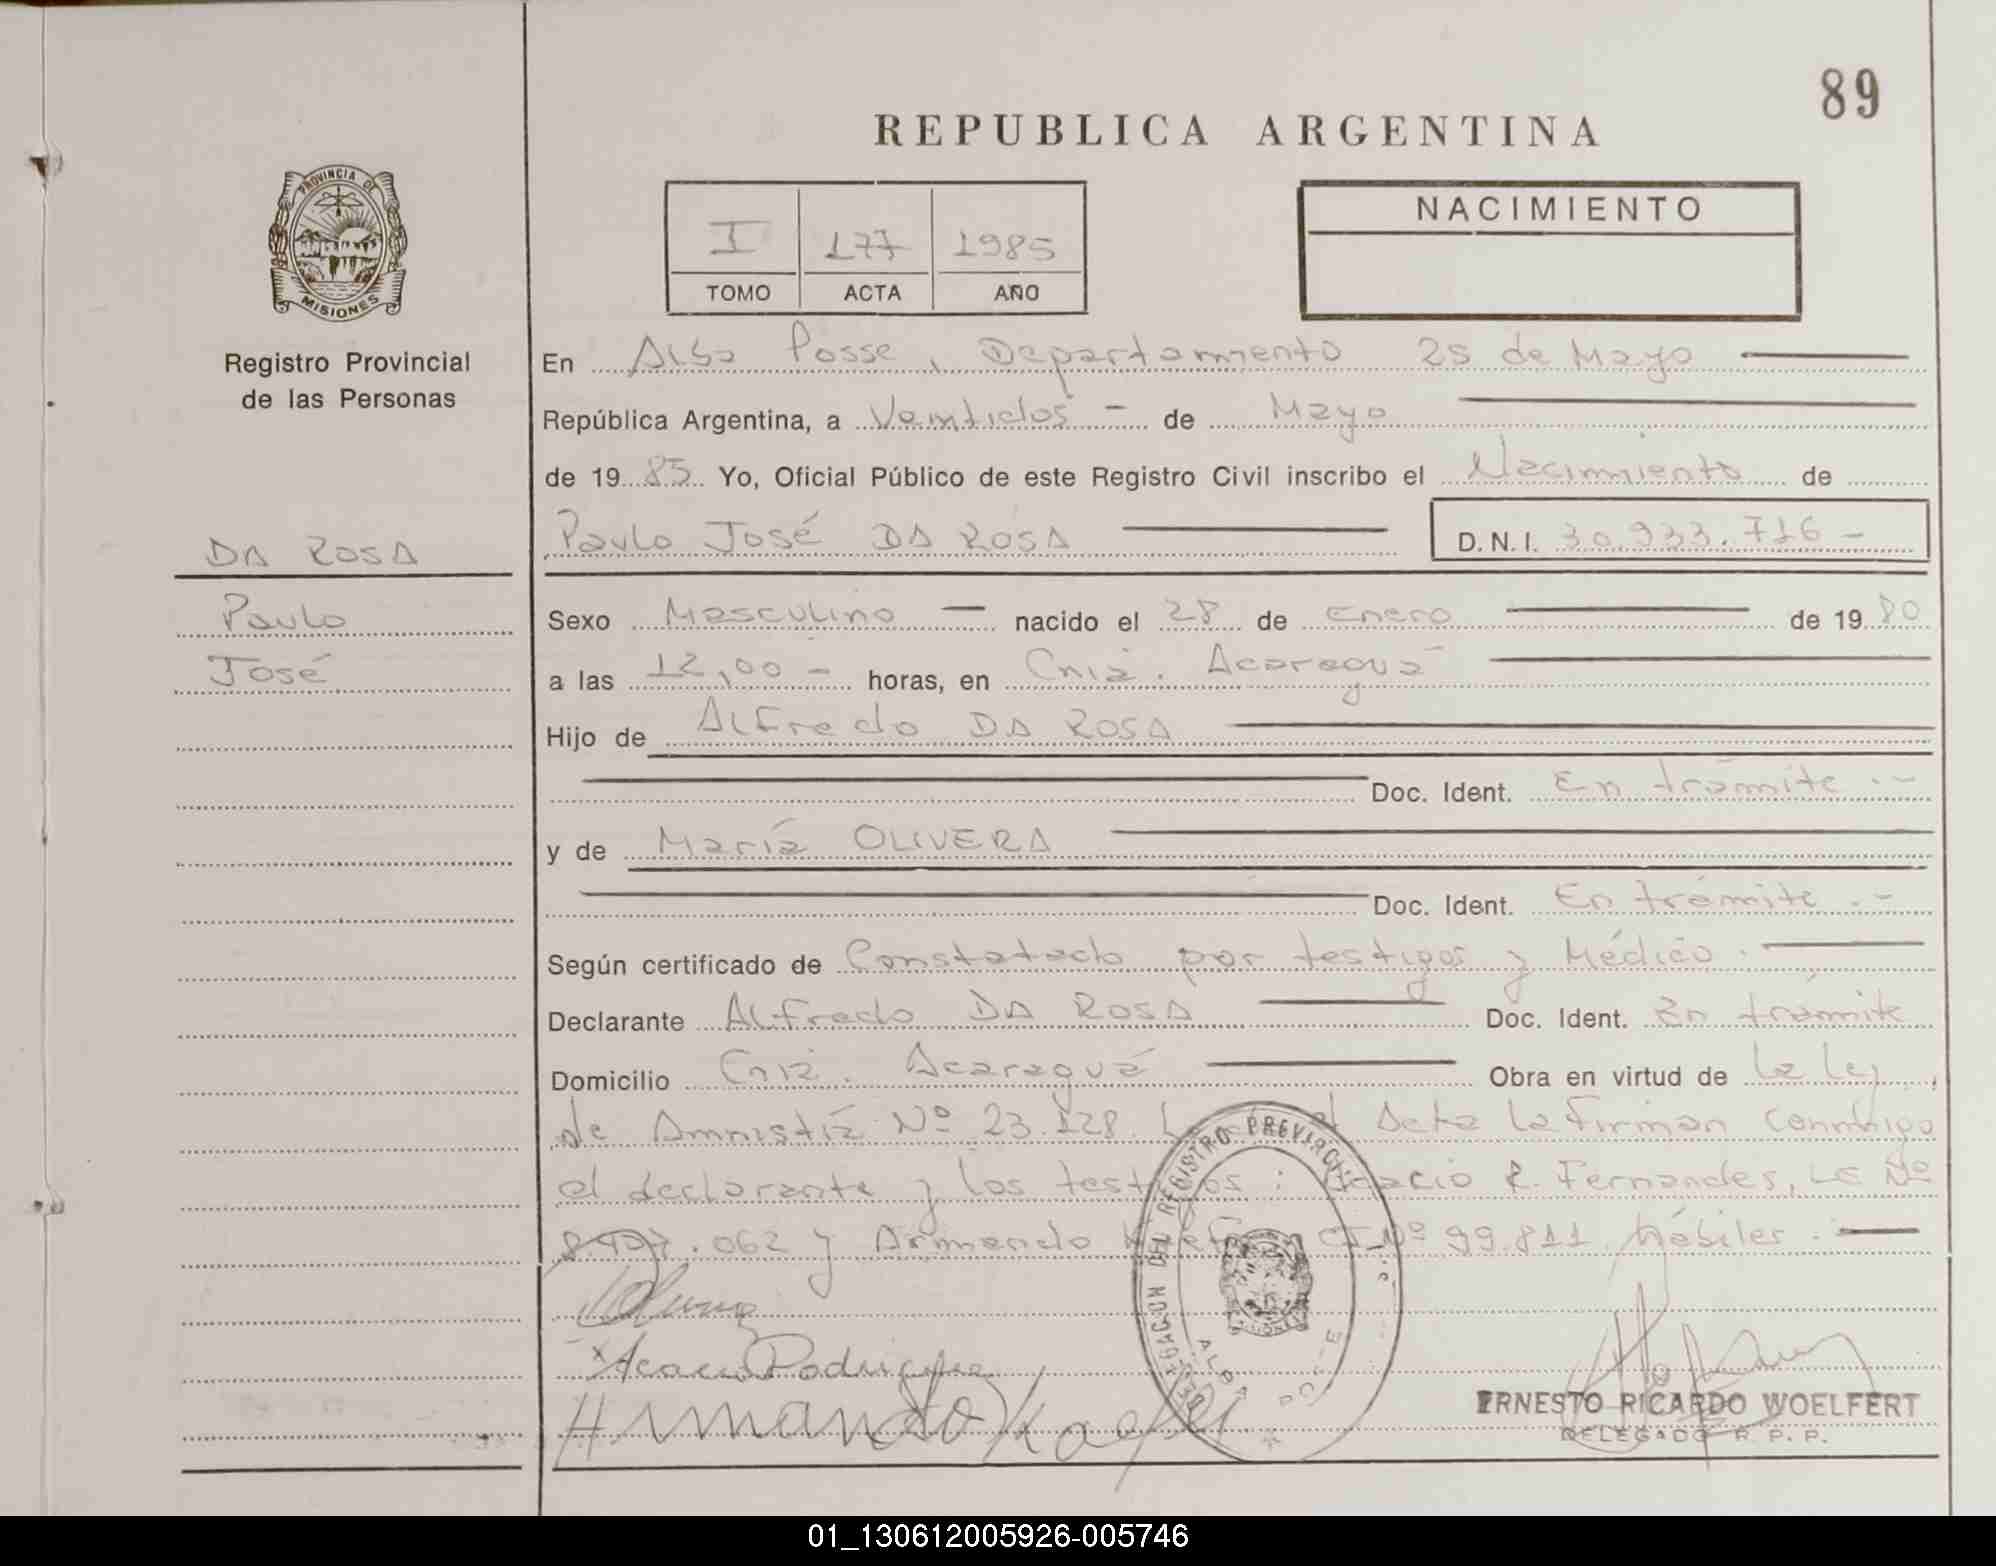 89
REPUBLICA ARGENTINA
PROVINCIA DE
MISIONES
Registro Provincial
de las Personas
I 177 1985
TOMO ACTA AÑO
NACIMIENTO
En Alba Posse, Departamento 25 de Mayo
República Argentina, a Veintidos - de Mayo
de 19 85 Yo, Oficial Público de este Registro Civil inscribo el Nacimiento de
Paulo José DA ROSA D.N.I. 30.933.716 -
DA ROSA
Paulo
José
Sexo Masculino nacido el 28 de Enero de 19 80
a las 12,00 - horas, en Cnia. Acaraguá
Hijo de Alfredo DA ROSA
Doc. Ident. En trámite .-
y de María OLIVERA
Doc. Ident. En trámite .-
Según certificado de Constatado por testigos y Médico.
Declarante Alfredo DA ROSA Doc. Ident. En trámite
Domicilio Cnia. Acaraguá Obra en virtud de la Ley
de Amnistía Nº 23.128. el Acta la firman conmigo
el declarante y los testigos: R. Fernandes, LE Nº
062 y Armando CI Nº 99.811 hábiles.
DELEGACION DEL REGISTRO PROVINCIAL
ALBA POSSE
Armando
ERNESTO RICARDO WOELFERT
DELEGADO R. P. P.
01_130612005926-005746